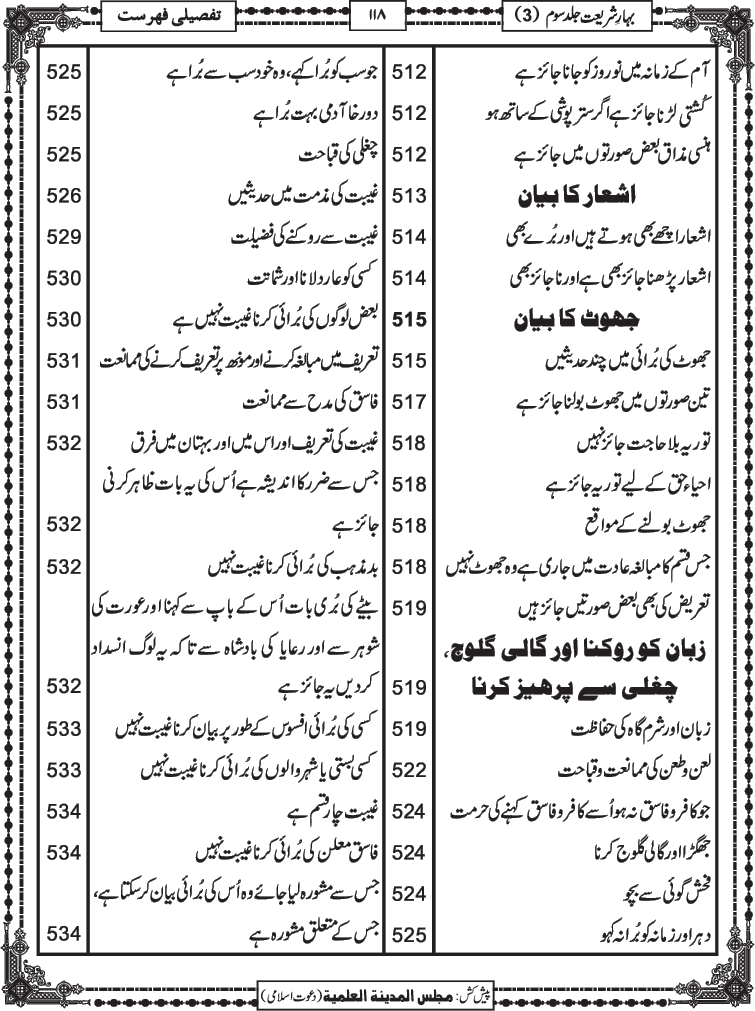 بہار شریعت جلد سوم (3)
۱۱۸
تفصیلی فہرست
آم کے زمانہ میں نوروز کو جانا جائز ہے 512
کُشتی لڑنا جائز ہے اگر ستر پوشی کے ساتھ ہو 512
ہنسی مذاق بعض صورتوں میں جائز ہے 512
اشعار کا بیان 513
اشعار اچھے بھی ہوتے ہیں اور بُرے بھی 514
اشعار پڑھنا جائز بھی ہے اور ناجائز بھی 514
جھوٹ کا بیان 515
جھوٹ کی بُرائی میں چند حدیثیں 515
تین صورتوں میں جھوٹ بولنا جائز ہے 517
توریہ بلا حاجت جائز نہیں 518
احیاءِ حق کے لیے توریہ جائز ہے 518
جھوٹ بولنے کے مواقع 518
جس قسم کا مبالغہ عادت میں جاری ہے وہ جھوٹ نہیں 518
تعریض کی بھی بعض صورتیں جائز ہیں 519
زبان کو روکنا اور گالی گلوج،
چغلی سے پرہیز کرنا 519
زبان اور شرم گاہ کی حفاظت 519
لعن و طعن کی ممانعت و قباحت 522
جو کافر و فاسق نہ ہو اُسے کافر و فاسق کہنے کی حرمت 524
جھگڑا اور گالی گلوج کرنا 524
فحش گوئی سے بچو 524
دہر اور زمانہ کو بُرا نہ کہو 525
جو سب کو بُرا کہے، وہ خود سب سے بُرا ہے 525
دورخا آدمی بہت بُرا ہے 525
چغلی کی قباحت 525
غیبت کی مذمت میں حدیثیں 526
غیبت سے روکنے کی فضیلت 529
کسی کو عار دلانا اور شماتت 530
بعض لوگوں کی بُرائی کرنا غیبت نہیں ہے 530
تعریف میں مبالغہ کرنے اور مونھ پر تعریف کرنے کی ممانعت 531
فاسق کی مدح سے ممانعت 531
غیبت کی تعریف اور اس میں اور بہتان میں فرق 532
جس سے ضرر کا اندیشہ ہے اُس کی یہ بات ظاہر کرنی
جائز ہے 532
بد مذہب کی بُرائی کرنا غیبت نہیں 532
بیٹے کی بُری بات اُس کے باپ سے کہنا اور عورت کی
شوہر سے اور رعایا کی بادشاہ سے تاکہ یہ لوگ انسداد
کردیں یہ جائز ہے 532
کسی کی بُرائی افسوس کے طور پر بیان کرنا غیبت نہیں 533
کسی بستی یا شہر والوں کی بُرائی کرنا غیبت نہیں 533
غیبت چار قسم ہے 534
فاسق معلن کی بُرائی کرنا غیبت نہیں 534
جس سے مشورہ لیا جائے وہ اُس کی بُرائی بیان کرسکتا ہے،
جس کے متعلق مشورہ ہے 534
پیش کش: مجلس المدینۃ العلمیۃ (دعوت اسلامی)